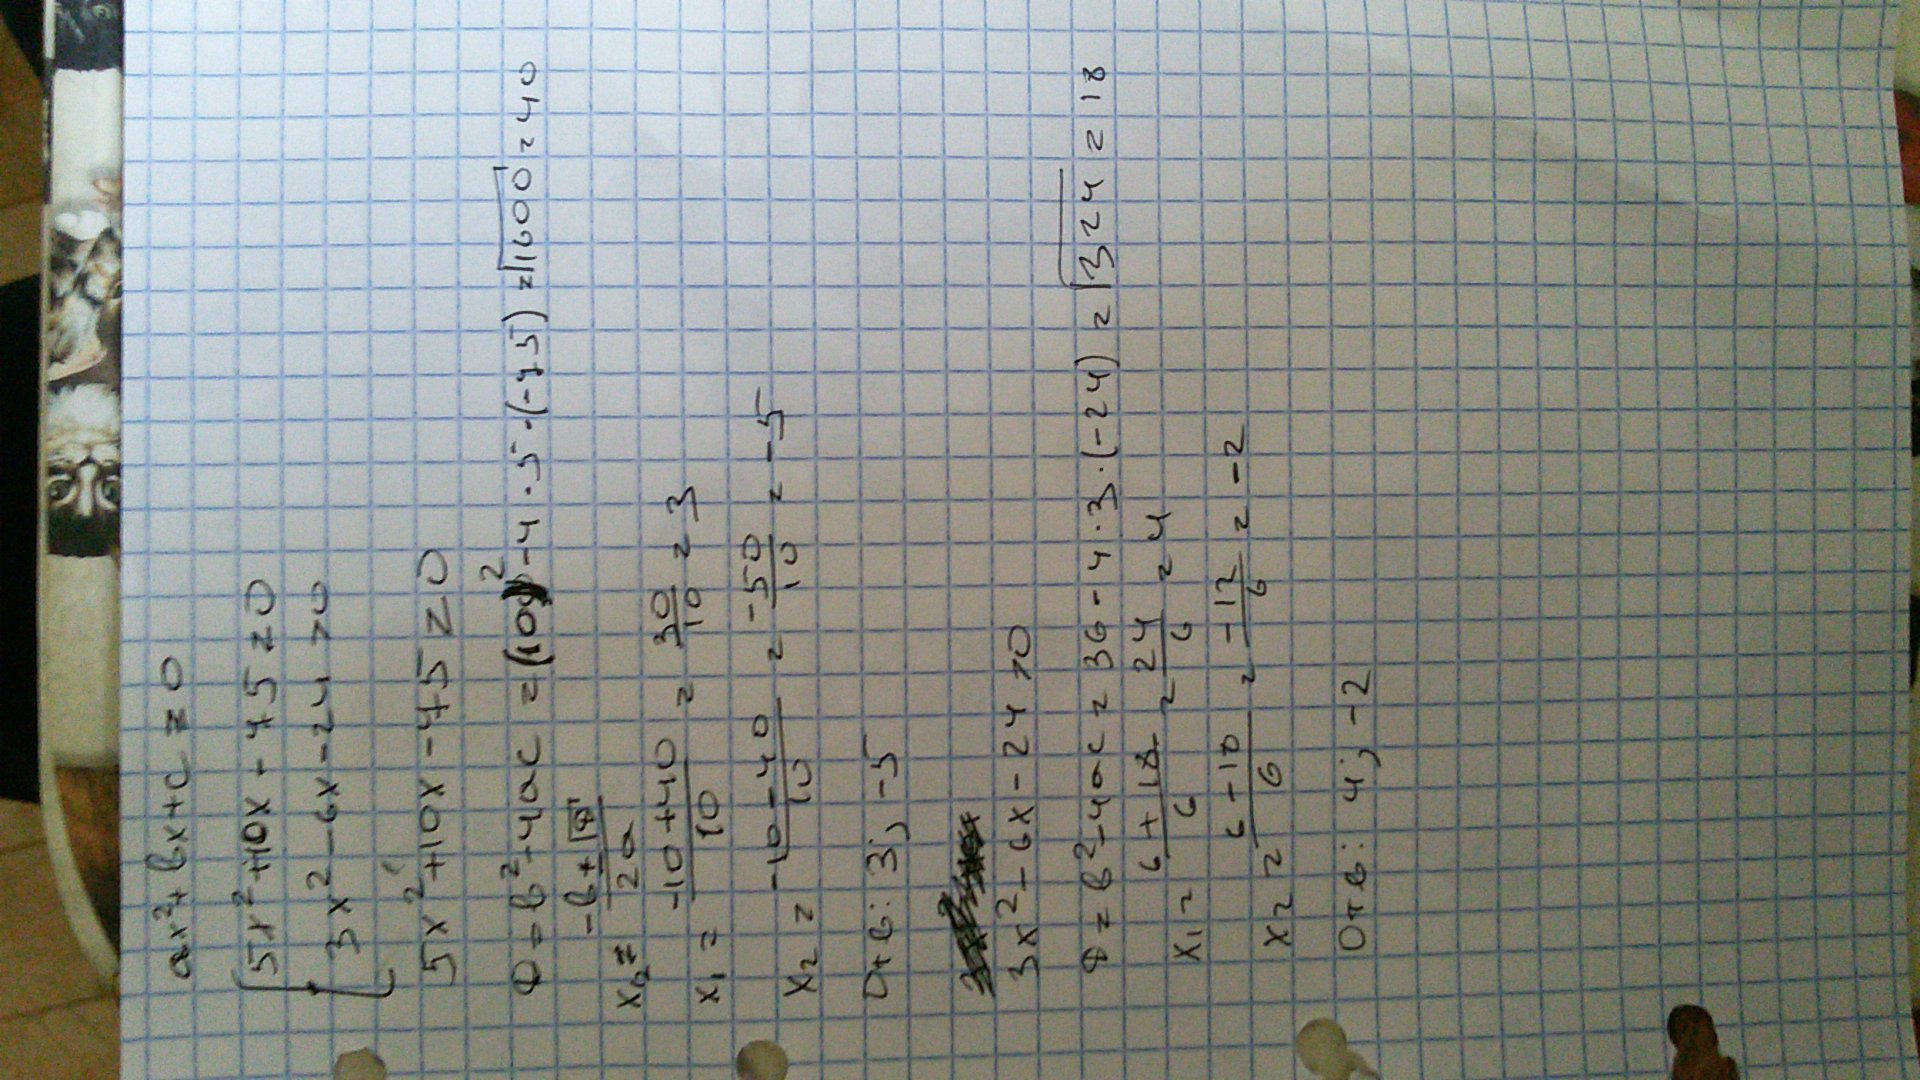 ax²+bx+c=0
5x²+10x-75≥0
3x²-6x-24>0
5x²+10x-75≥0
D=b²-4ac=(10)²-4·5·(-75)=√1600=40
x₁,₂=(-b±√D)/2a
x₁=(-10+40)/10=30/10=3
x₂=(-10-40)/10=-50/10=-5
Отв: 3; -5
3x²-6x-24>0
D=b²-4ac=36-4·3·(-24)=√324=18
x₁=(6+18)/6=24/6=4
x₂=(6-18)/6=-12/6=-2
Отв: 4; -2